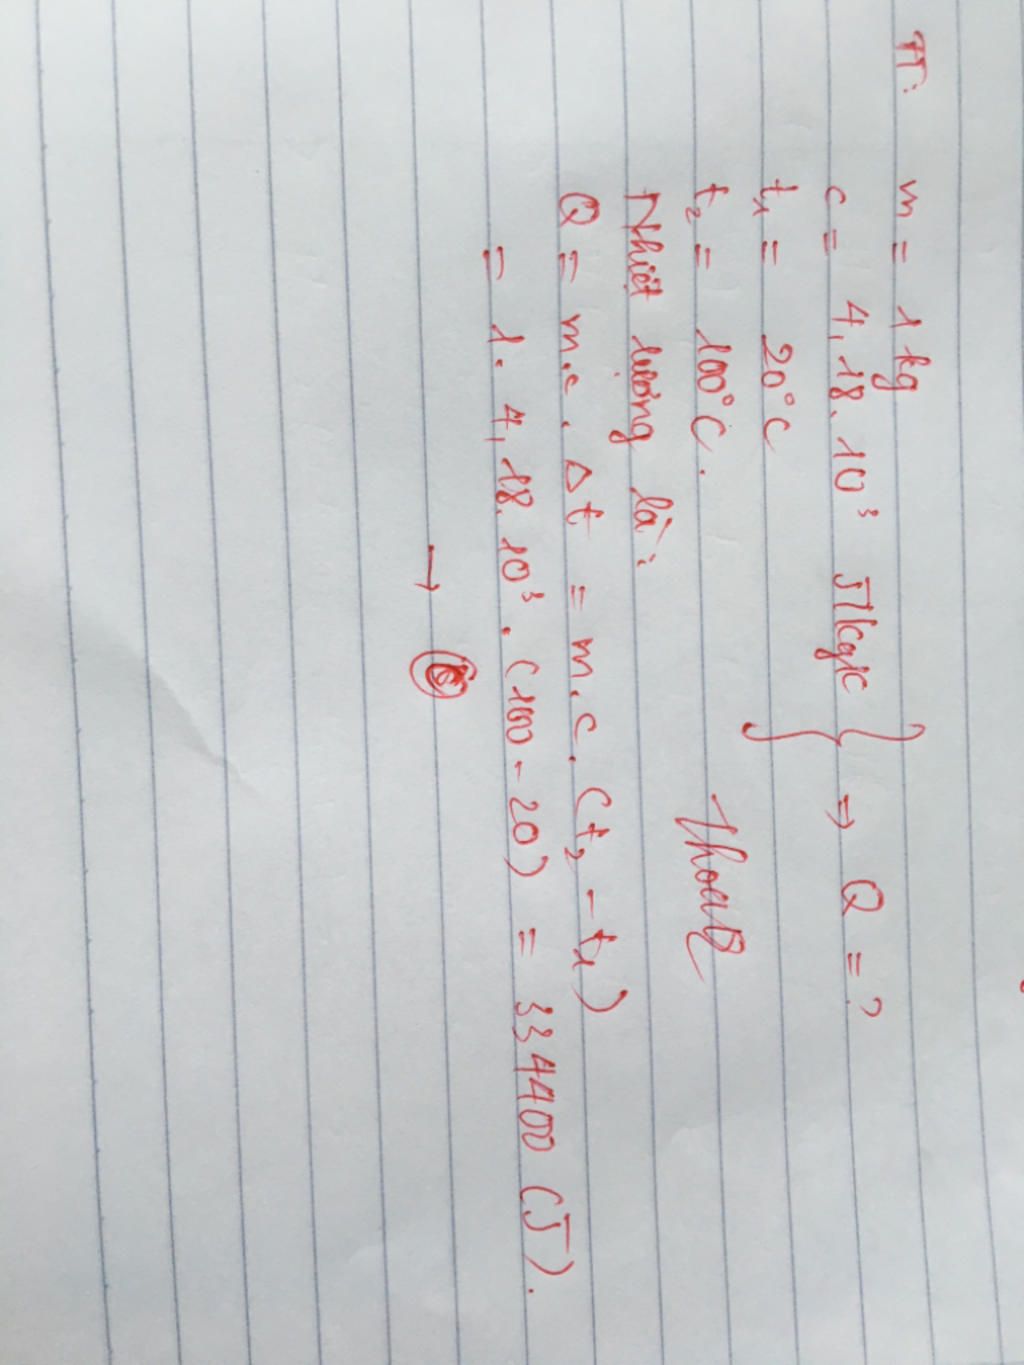 TT: m = 1 kg
c = 4,18.10³ J/kg/c } => Q = ?
t₁ = 20°C
t₂ = 100°C.
Nhiệt lượng là:
Q = m.c.Δt = m.c.(t₂ - t₁)
= 1. 4,18.10³.(100-20) = 334400 (J).
→